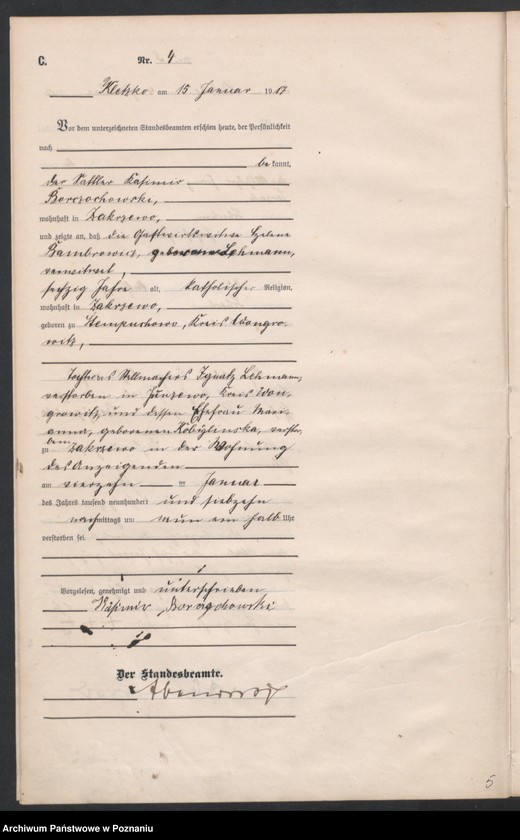 C.
Nr. 4
Kletzko am 15 Januar 1917
Vor dem unterzeichneten Standesbeamten erschien heute, der Persönlichkeit
nach
bekannt,
der Sattler Kasimir
Borczochowski,
wohnhaft in Zakrzewo,
und zeigte an, daß die Gastwirtswitwe Helene
Bambrowicz, geborene Lehmann,
verwitwet,
sechzig Jahre alt, katholischer Religion,
wohnhaft in Zakrzewo,
geboren zu Stempuchowo, Kreis Wongro-
witz,
Tochter des Stellmachers Ignatz Lehmann,
verstorben in Kreis Won-
growitz und dessen Ehefrau Mari-
anna, geborenen Kobylinska, verstor-
ben
zu Zakrzewo in der Wohnung
des Anzeigenden
am vierzehn ten Januar
des Jahres tausend neunhundert und siebzehn
nachmittags um neun ein halb Uhr
verstorben sei.
Vorgelesen, genehmigt und unterschrieben
Kasimir
Der Standesbeamte.
5
Archiwum Państwowe w Poznaniu